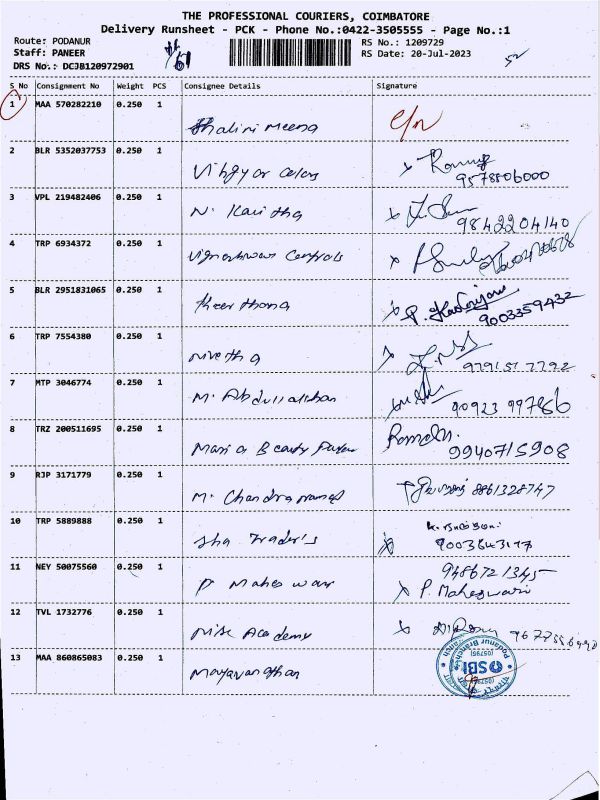 THE PROFESSIONAL COURIERS, COIMBATORE
Delivery Runsheet - PCK - Phone No.:0422-3505555 - Page No.:1
Route: PODANUR RS No.: 1209729
Staff: PANEER RS Date: 20-Jul-2023
DRS No.: DCJB120972901 52
S No Consignment No Weight PCS Consignee Details Signature
1 MAA 570282210 0.250 1
Shalini Meena
2 BLR 5352037753 0.250 1
Vibgyor Colors
9578806000
3 VPL 219482406 0.250 1
N. Kavitha
9842204140
4 TRP 6934372 0.250 1
Vigneshwar Controls
5 BLR 2951831065 0.250 1
Keerthana
9003359432
6 TRP 7554380 0.250 1
Nivetha
9791517792
7 MTP 3046774 0.250 1
M. Abdullakhan
90923 99786
8 TRZ 200511695 0.250 1
Maria Beauty
9940715908
9 RJP 3171779 0.250 1
M. Chandra 8861328747
10 TRP 5889888 0.250 1
Sha Trader's
9003643177
11 NEY 50075560 0.250 1
9486721345
P Maheswari P. Maheswari
12 TVL 1732776 0.250 1
Academy
13 MAA 860865083 0.250 1
Mayavanathan
Podanur Branch
(05795)
SBI